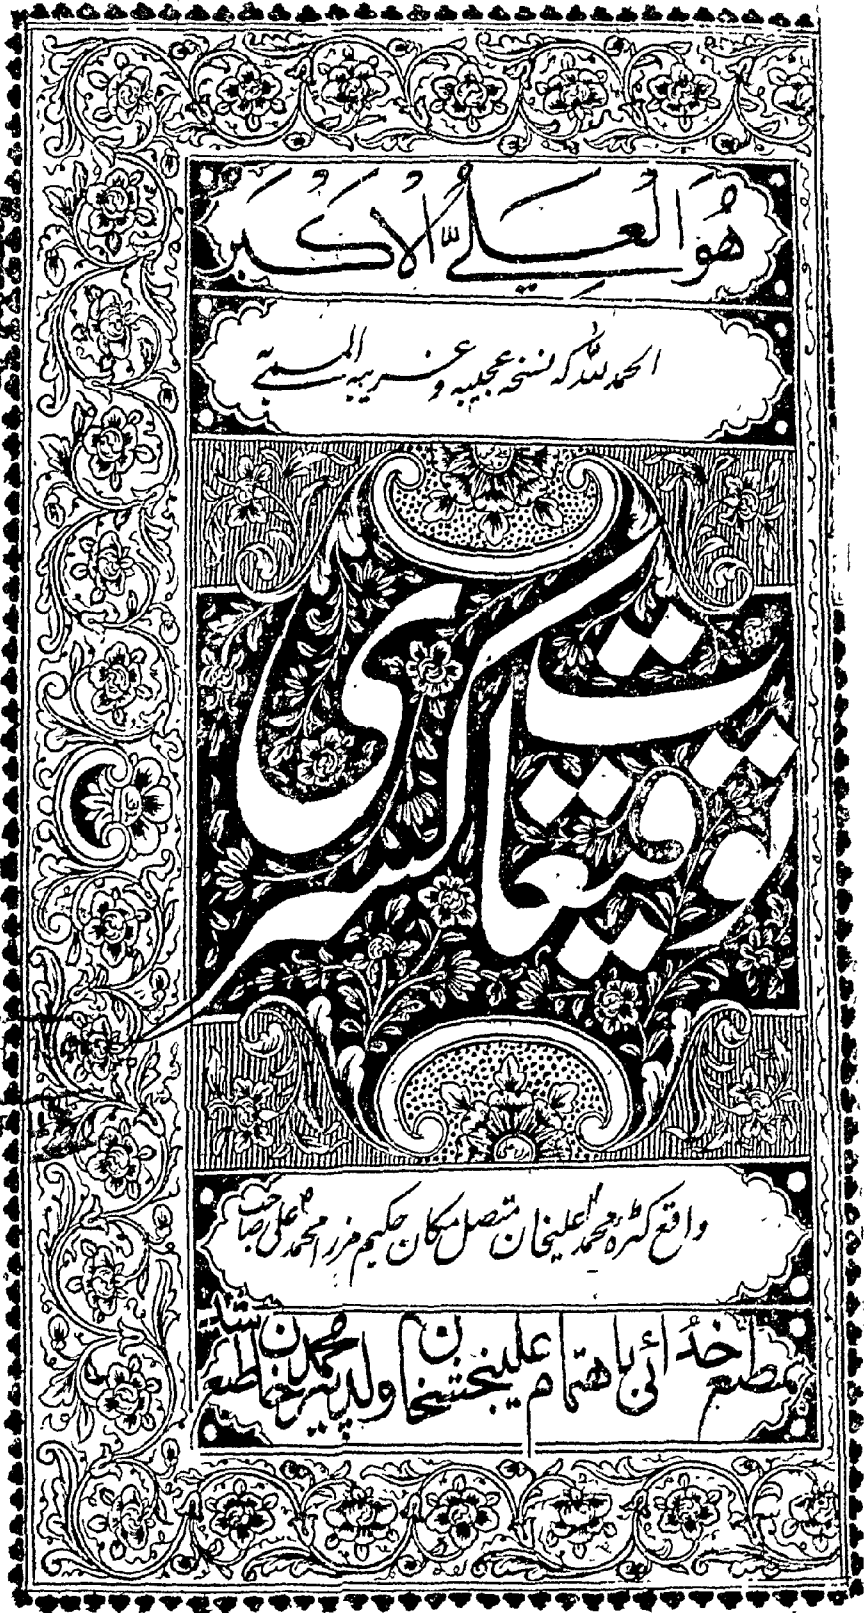 هُوَ الْعَلِيُّ الْاَكْبَر
الحمد للّٰہ کہ نسخہ عجیبہ و غریبہ المسمی بہ
توقیعات کسری
واقع کٹرہ محمد علیخان متصل مکان حکیم مرزا محمد علی صاحب
مطبع خدائی باہتمام علی بخش خان ولد محمدی خان طبع شد